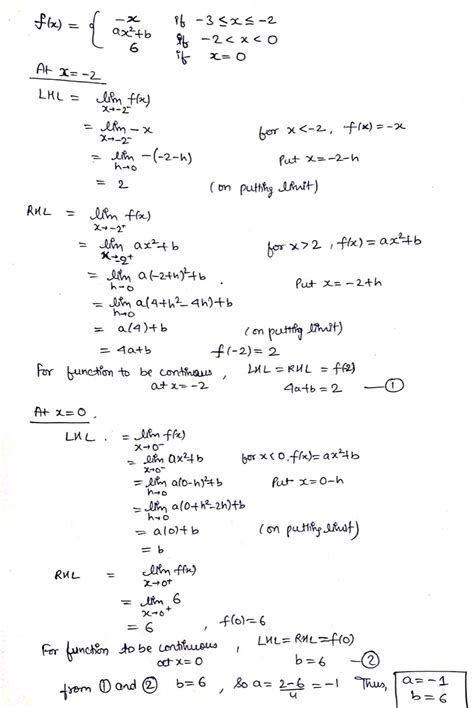 f(x) = { -x if -3 ≤ x ≤ -2
ax²+b if -2 < x < 0
6 if x = 0
At x = -2
LHL = lim x→-2⁻ f(x)
= lim x→-2⁻ -x for x < -2, f(x) = -x
= lim h→0 -(-2-h) Put x = -2-h
= 2 (on putting limit)
RHL = lim x→-2⁺ f(x)
= lim x→-2⁺ ax²+b for x > 2, f(x) = ax²+b
= lim h→0 a(-2+h)²+b. Put x = -2+h
= lim h→0 a(4+h²-4h)+b
= a(4)+b (on putting limit)
= 4a+b f(-2) = 2
For function to be continous, LHL = RHL = f(2)
at x = -2 4a+b = 2 — ①
At x = 0.
LHL. = lim x→0⁻ f(x)
= lim x→0⁻ ax²+b for x < 0. f(x) = ax²+b
= lim h→0 a(0-h)²+b Put x = 0-h
= lim h→0 a(0+h²-2h)+b
= a(0)+b (on putting limit)
= b
RHL = lim x→0⁺ f(x)
= lim x→0⁺ 6
= 6 , f(0) = 6
For function to be continuous, LHL = RHL = f(0)
at x = 0 b = 6 — ②
from ① and ② b = 6, So a = 2-6/4 = -1 Thus, a = -1
b = 6